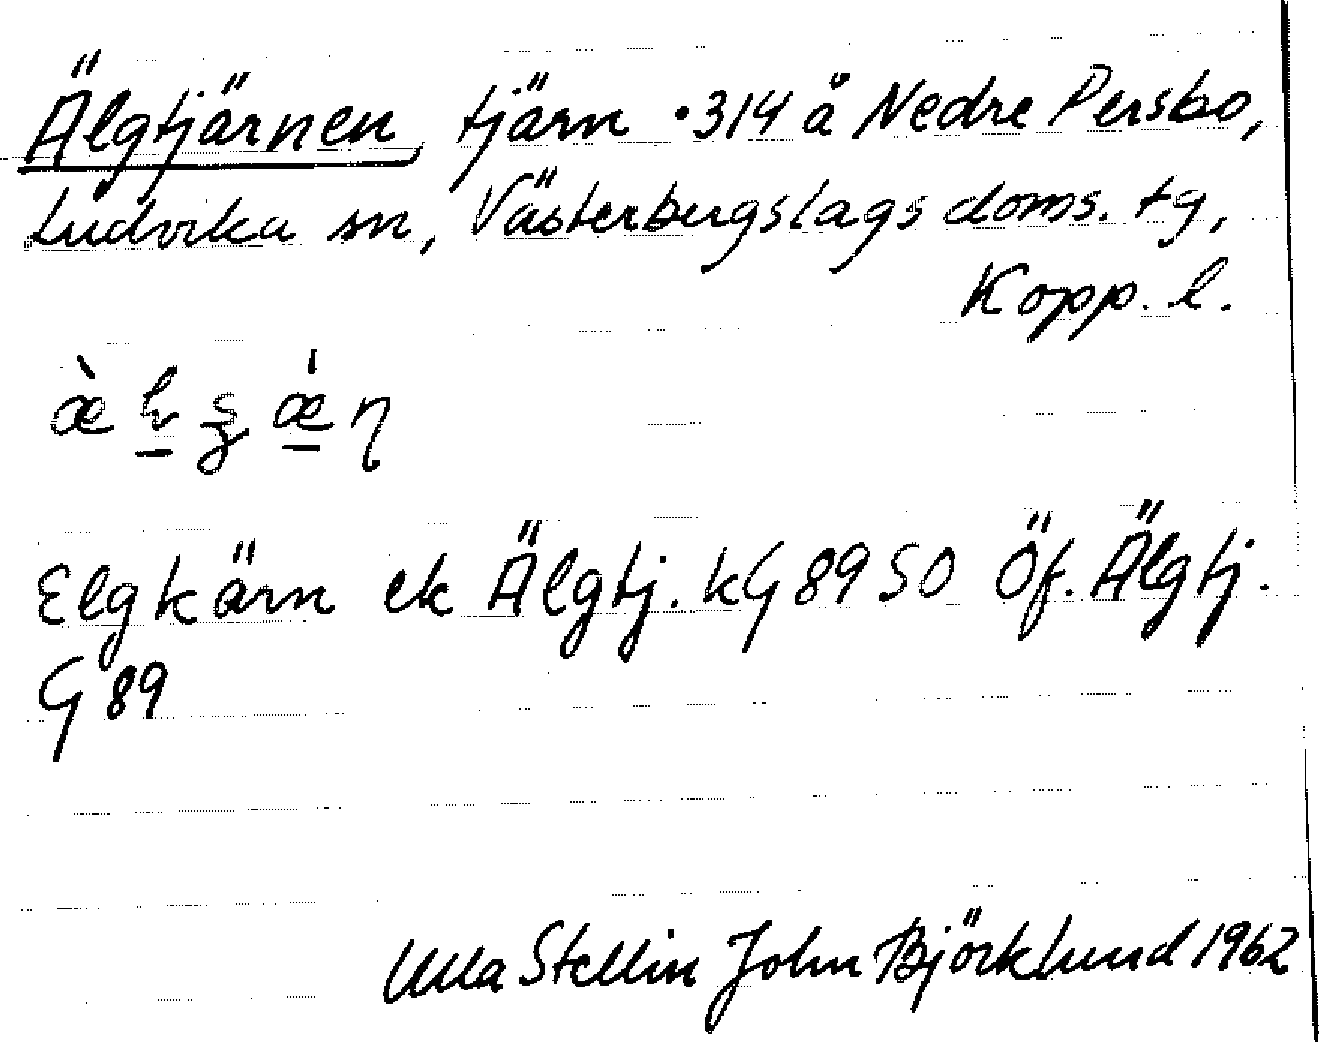 Älgtjärnen, tjärn •314 å Nedre Persbo,
Ludvika sn, Västerbergslags doms. tg,
Kopp. l.
Elgkärn ek Älgtj. kG 89 SO Öf. Älgtj.
G 89
Ulla Stellin John Björklund 1962